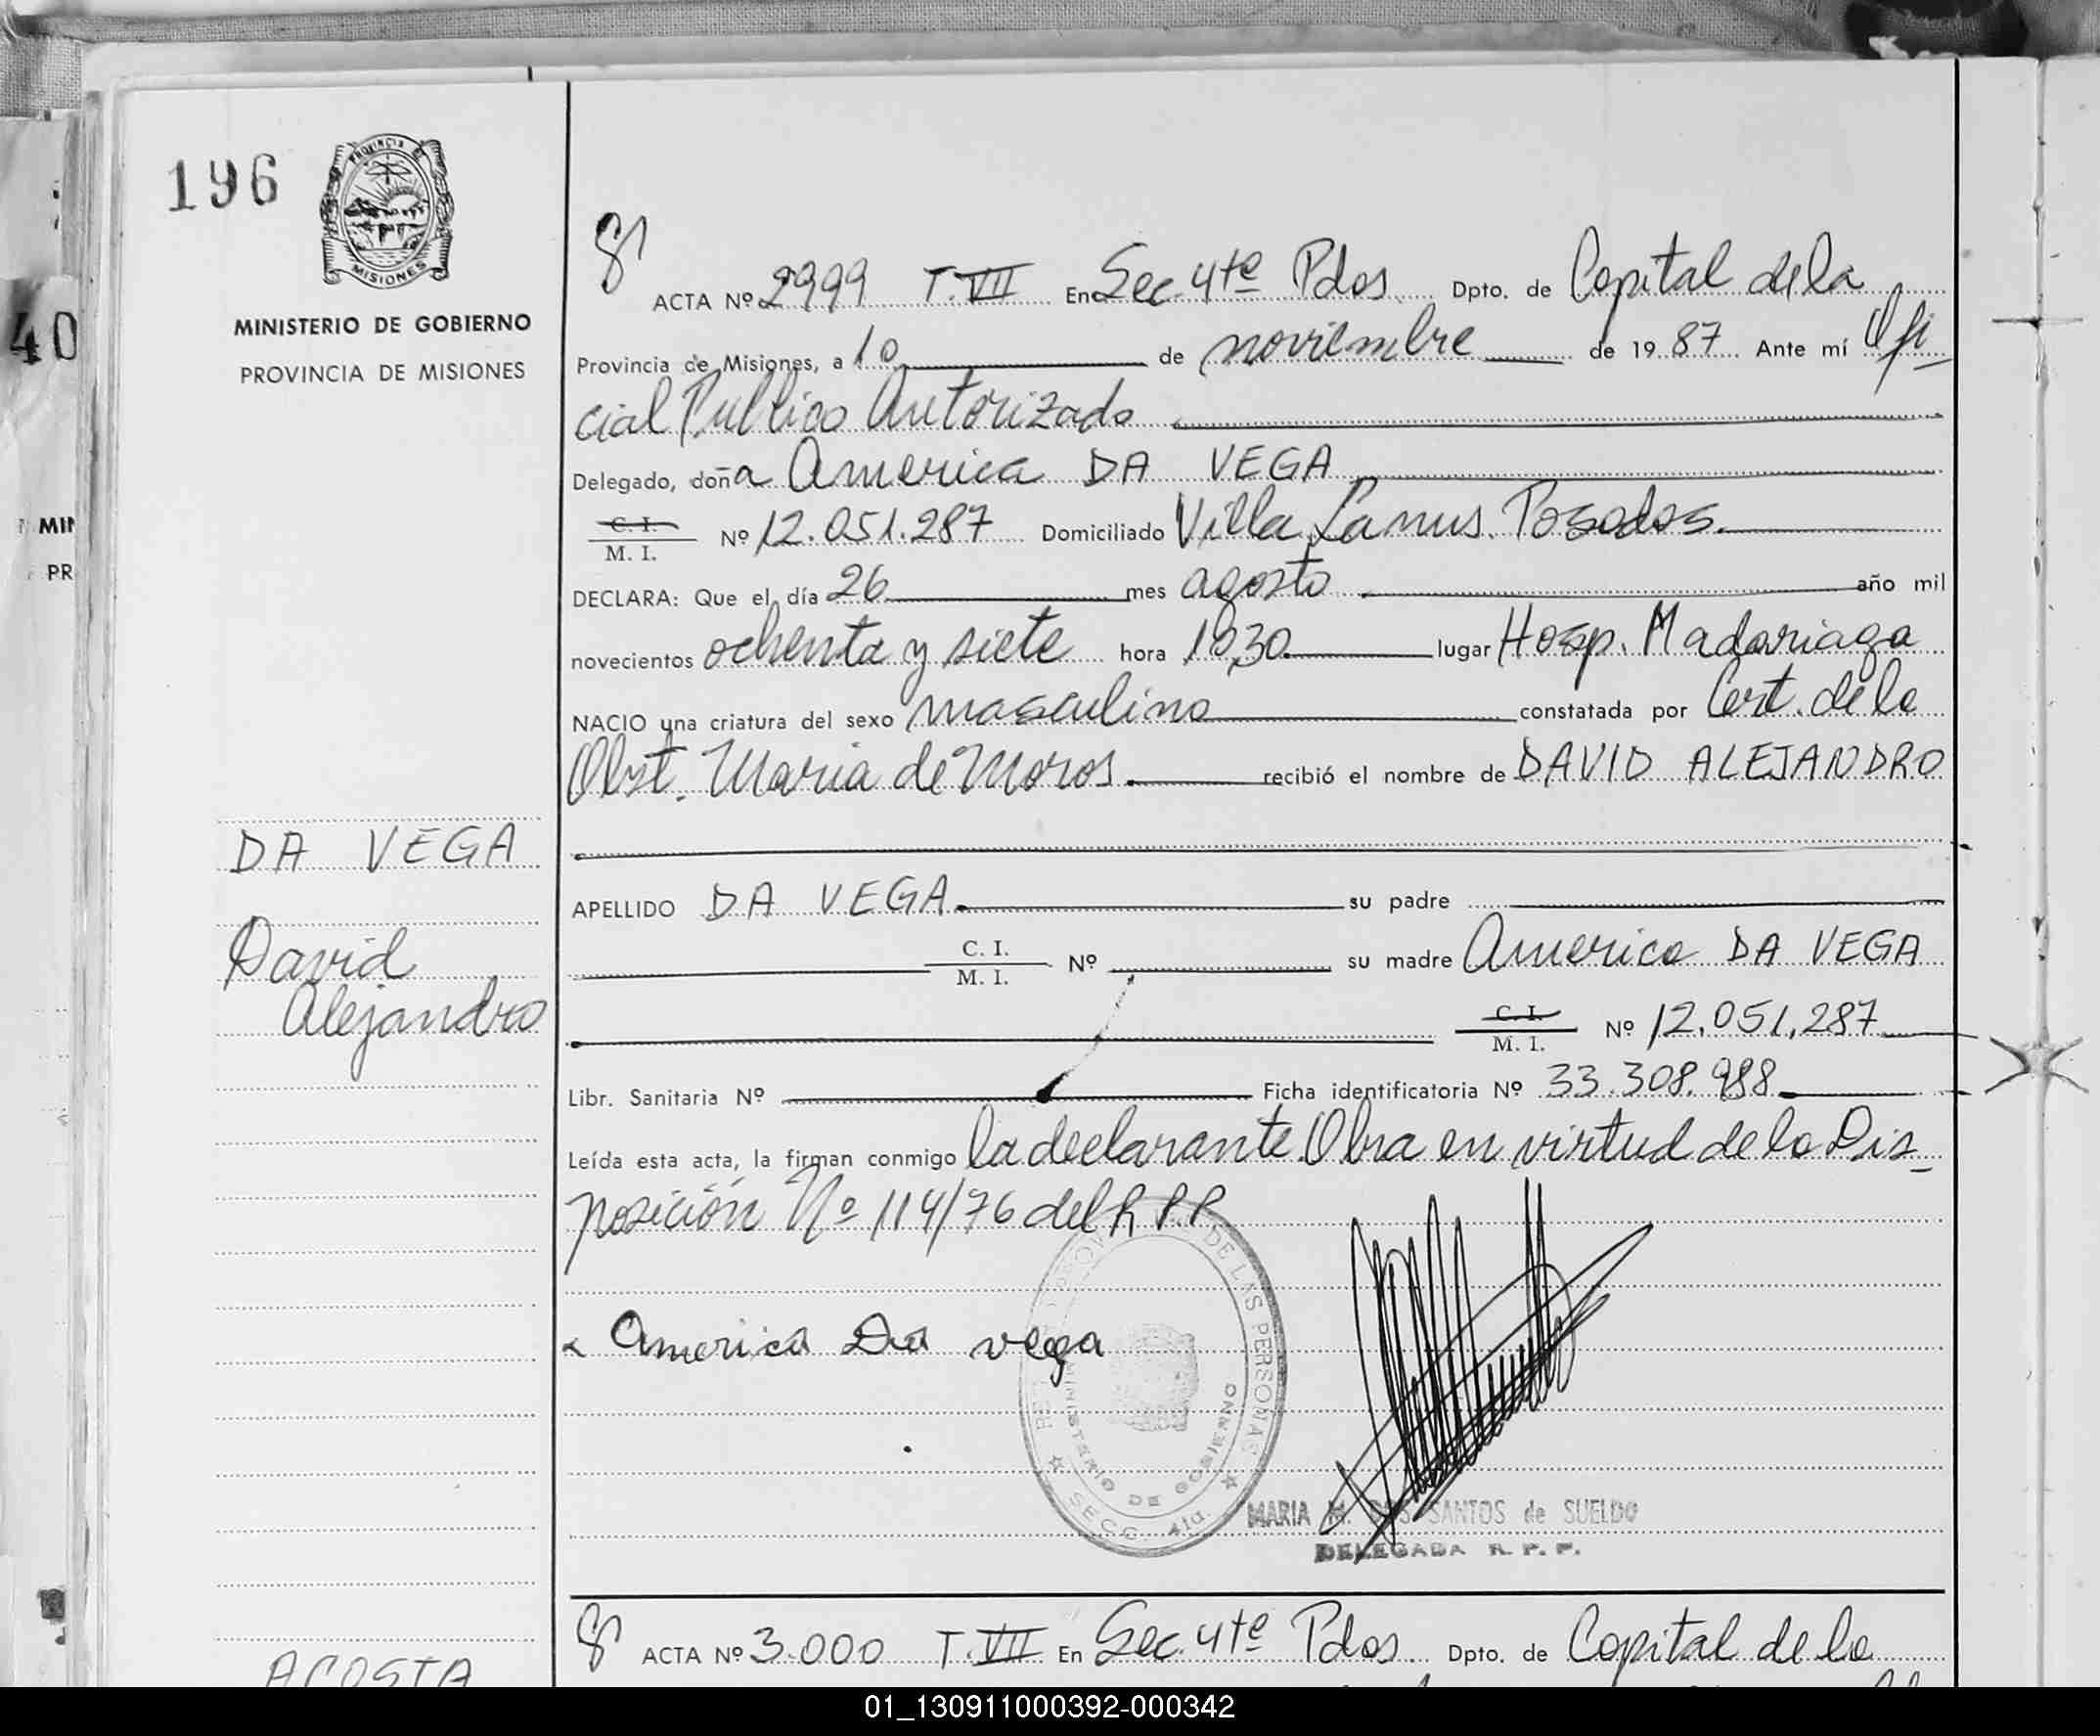 196
PROVINCIA DE
MISIONES
MINISTERIO DE GOBIERNO
PROVINCIA DE MISIONES
40
MIN
PR
DA VEGA
David
Alejandro
ACTA Nº 2999 T. VII En Sec. 4ta Pdas. Dpto. de Capital de la
Provincia de Misiones, a 10 de noviembre de 19 87 Ante mí Ofi-
cial Publico Autorizado
Delegado, doña America DA VEGA
C. I.
M. I. Nº 12.051.287 Domiciliado Villa Lanus. Posadas.
DECLARA: Que el día 26 mes agosto año mil
novecientos ochenta y siete hora 10,30 lugar Hosp. Madariaga
NACIO una criatura del sexo masculino constatada por Cert. de la
Obst. Maria de Moros. recibió el nombre de DAVID ALEJANDRO
APELLIDO DA VEGA su padre
C. I.
M. I. Nº su madre America DA VEGA
C. I.
M. I. Nº 12.051.287
Libr. Sanitaria Nº Ficha identificatoria Nº 33.308.988
Leída esta acta, la firman conmigo la declarante. Obra en virtud de la Dis-
posición Nº 114/76 del R.P.P.
America Da vega
DE LAS PERSONAS
MINISTERIO DE GOBIERNO
SECC. 4ta
MARIA M. DOS SANTOS de SUELDO
DELEGADA R. P. P.
ACTA Nº 3.000 T. VII En Sec. 4ta Pdas. Dpto. de Capital de la
ACOSTA
01_130911000392-000342